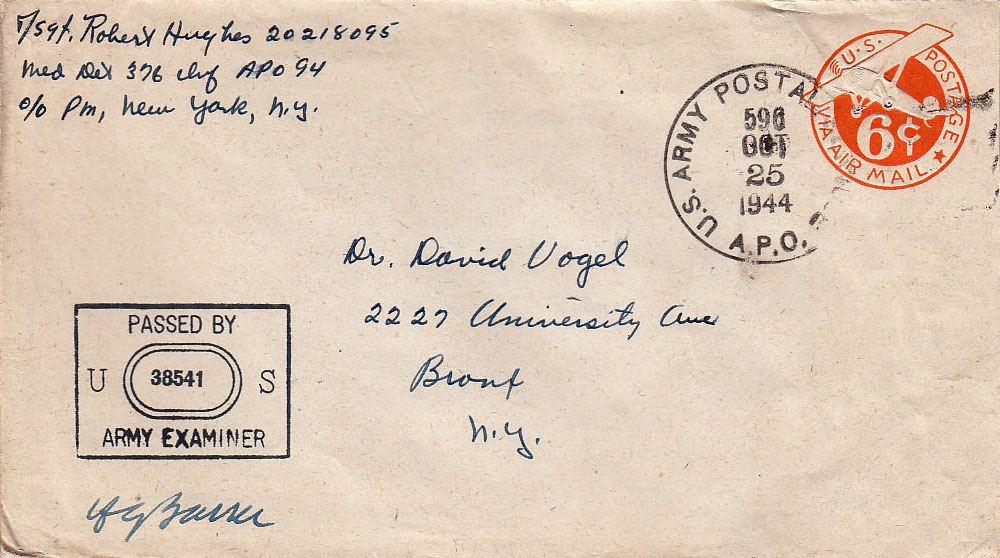 T/Sgt. Robert Hughes 20218095
Med Det 376 Inf APO 94
c/o Pm, New York, N.Y.
U.S. ARMY POSTAL
A.P.O.
596
OCT
25
1944
U.S. POSTAGE
6¢
VIA AIR MAIL
Dr. David Vogel
2227 University Ave
Bronx
N.Y.
PASSED BY
U 38541 S
ARMY EXAMINER